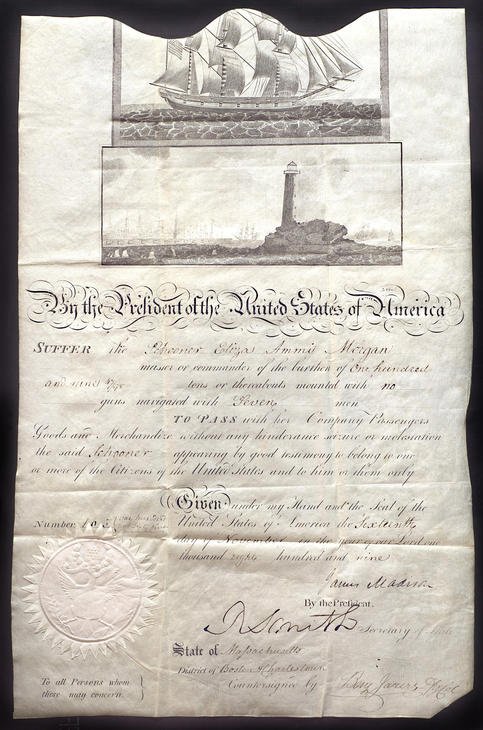 By the President of the United States of America
SUFFER the Schooner Eliza Ammi Morgan
master or commander of the burthen of One hundred
and nine tons or thereabouts mounted with no
guns navigated with Seven men
TO PASS with her Company Passengers
Goods and Merchandize without any hinderance seizure or molestation
the said Schooner appearing by good testimony to belong to one
or more of the Citizens of the United States and to him or them only
Given under my Hand and the Seal of the
United States of America the Sixteenth
day of November in the year of our Lord one
thousand eight hundred and nine
Number
James Madison
By the President.
R Smith Secretary of State
State of Massachusetts
District of Boston & Charlestown
Countersigned by
To all Persons whom
these may concern.